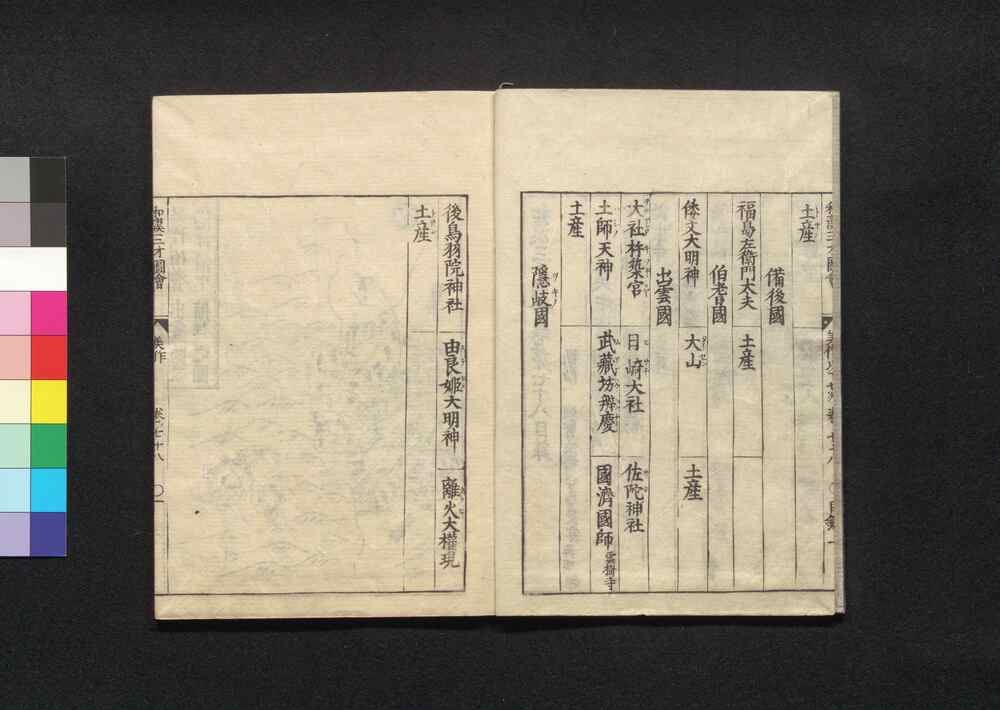 土産
備後國
福島左衞門太夫
土産
伯耆國
倭文大明神
大山
土産
出雲國
大社杵築宮
日崎大社
佐陀神社
土師天神
武藏坊辨慶
國濟國師 雲樹寺
土産
隱岐國
後鳥羽院神社
由良姬大明神
離火大權現
土産
和漢三才圖會
美作
卷之七十八